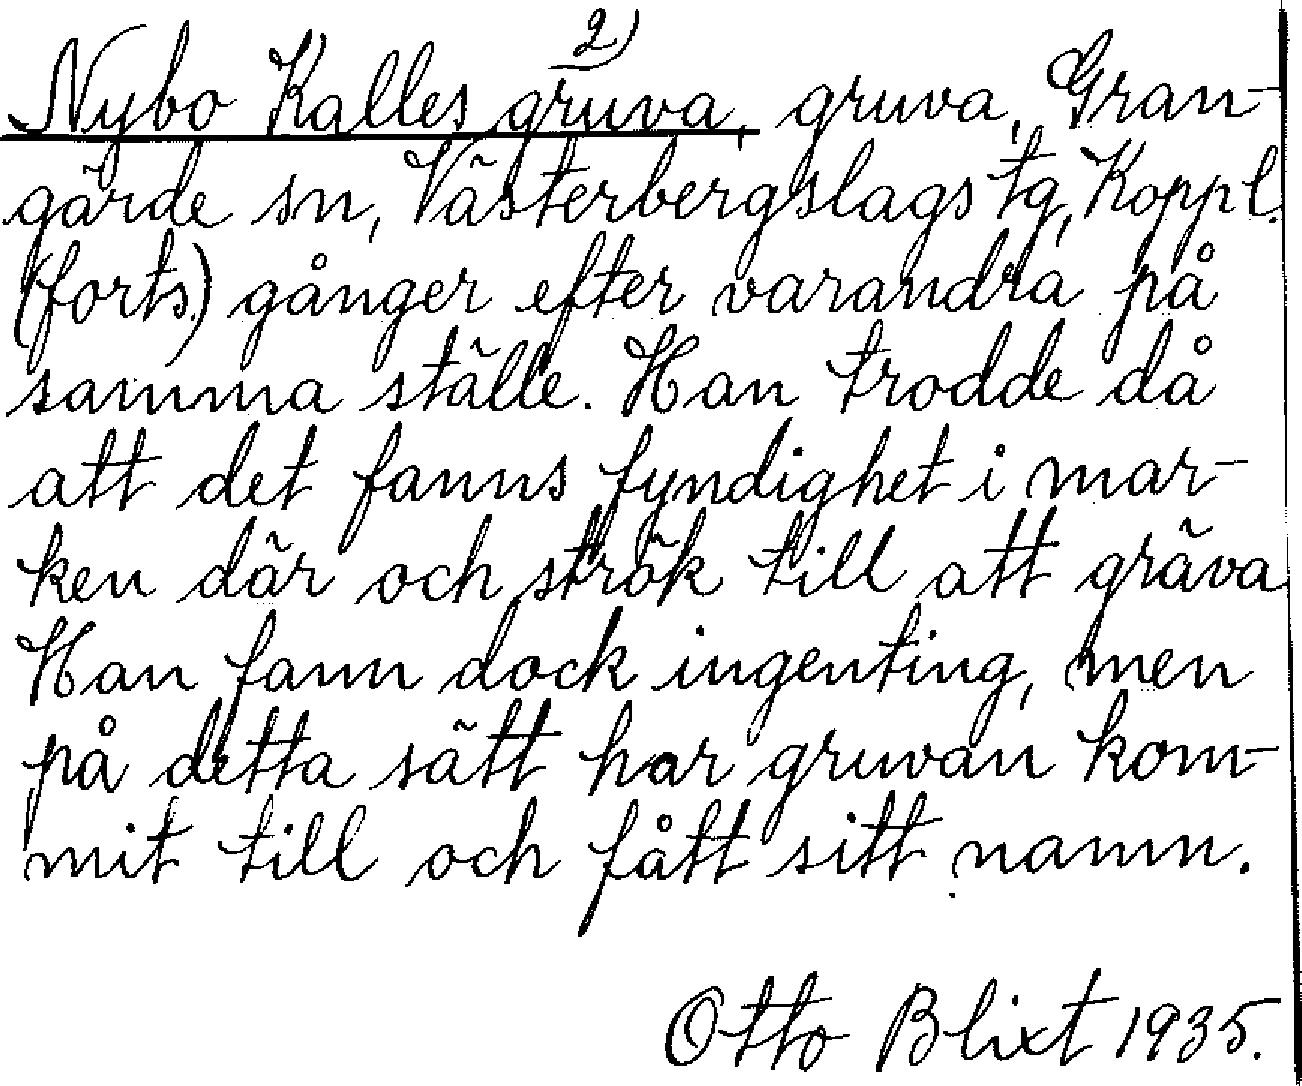 2)
Nybo Kalles gruva, gruva, Gran-
gärde sn, Västerbergslags tg, Koppl.
(forts.) gånger efter varandra på
samma ställe. Han trodde då
att det fanns fyndighet i mar-
ken där och strök till att gräva
Han fann dock ingenting, men
på detta sätt har gruvan kom-
mit till och fått sitt namn.
Otto Blixt 1935.